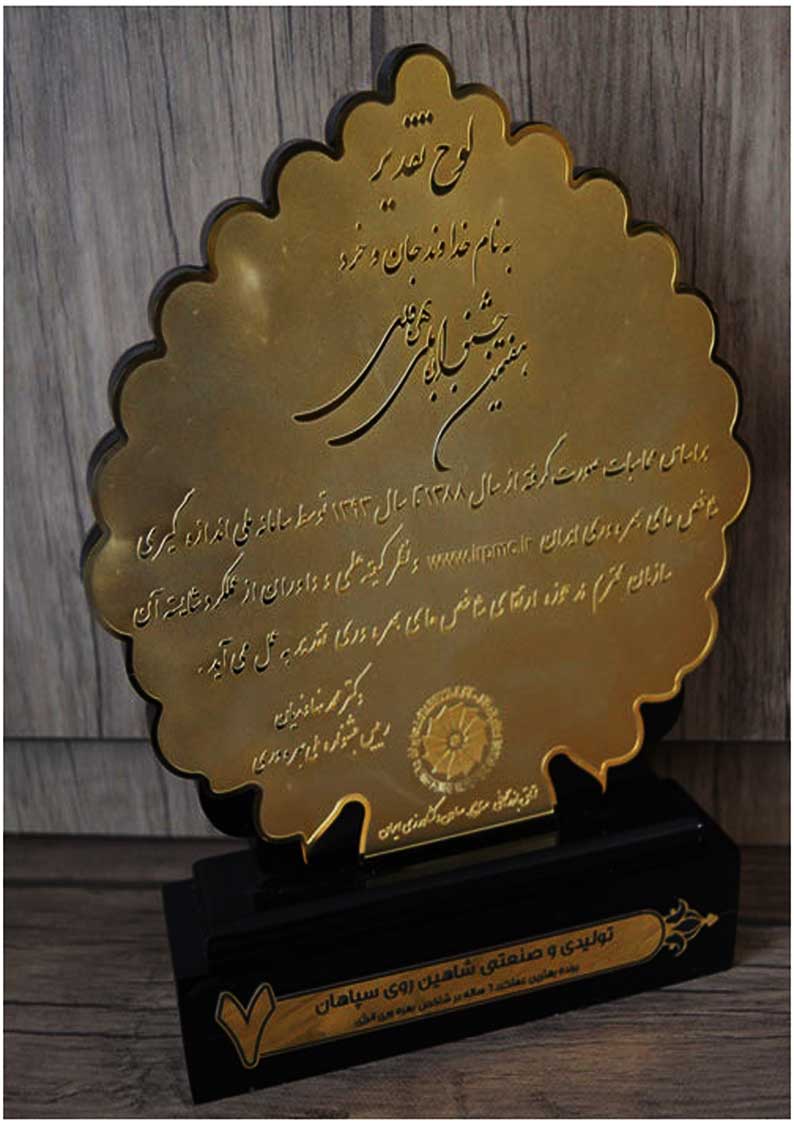 لوح تقدیر
به نام خداوند جان و خرد
هفتمین جشنواره ملی بهره وری
بر اساس محاسبات صورت گرفته از سال ۱۳۸۸ تا سال ۱۳۹۳ توسط سامانه ملی اندازه گیری
شاخص های بهره وری ایران www.irpmc.ir و نظر کمیته علمی و داوران از عملکرد شایسته آن
سازمان محترم در حوزه ارتقای شاخص های بهره وری تقدیر به عمل می آید .
دکتر
رییس جشنواره ملی بهره وری
اتاق بازرگانی صنایع معادن و کشاورزی ایران
تولیدی و صنعتی شاهین روی سپاهان
برنده بهترین عملکرد ۶ ساله در شاخص بهره وری انرژی
۷